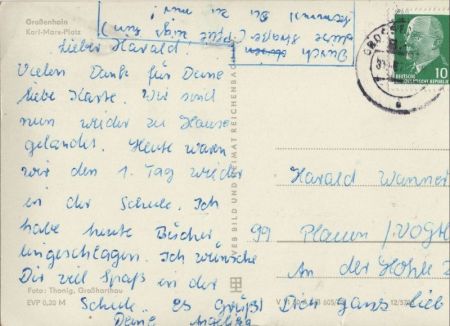 Großenhain
Karl-Marx-Platz
Durch
diese Straße
kommst Du zu mir!
Lieber Harald!
Vielen Dank für Deine
liebe Karte. Wir sind
nun wieder zu Hause
gelandet. Heute waren
wir den 1. Tag wieder
in der Schule. Ich
habe heute Bücher
eingeschlagen. Ich wünsche
Dir viel Spaß in der
Schule. es Grüßt Dich ganz lieb
Deine Angelika
Foto: Thonig, Großharthau
EVP 0,20 M
VEB BILD UND HEIMAT REICHENBACH
DEUTSCHE
DEMOKRATISCHE REPUBLIK
10
Harald Wanner
99 Plauen / Vogtl
An der Hohle 2